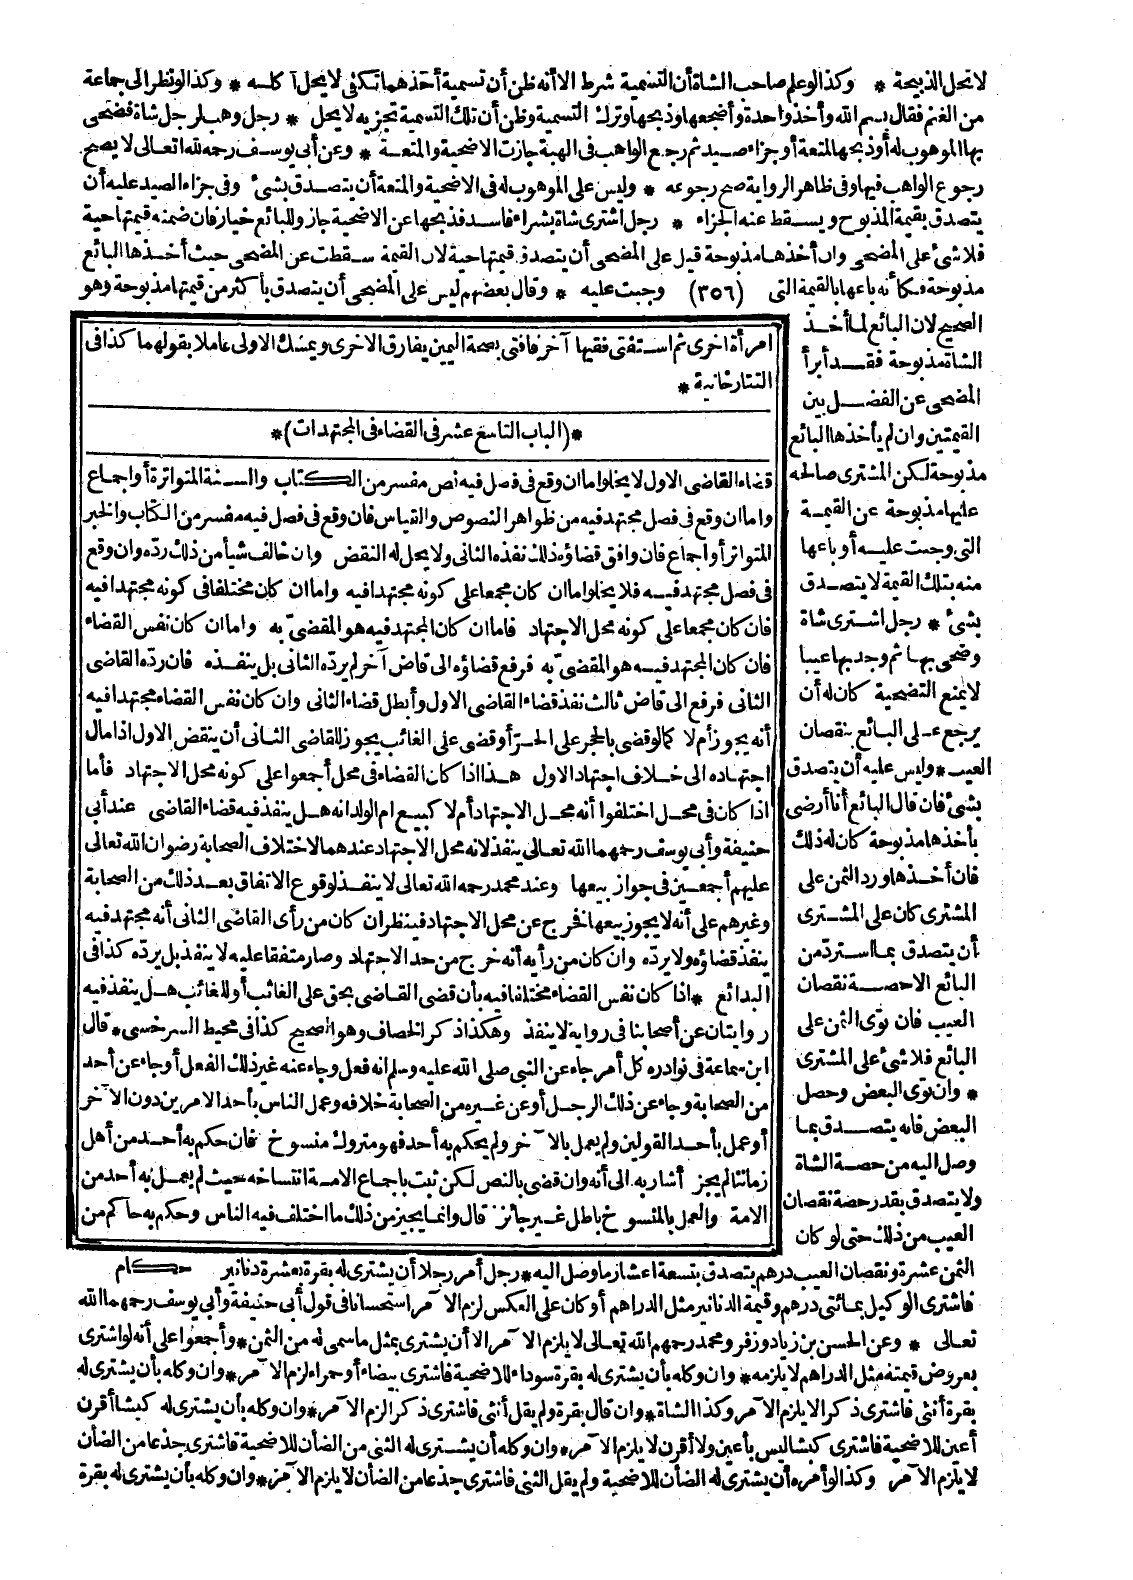 لا تحل الذبيحة * وكذا لو علم صاحب الشاة أن التسمية شرط الا أنه ظن أن تسمية أحدهما تكفى لا يحل أكله * وكذا لو نظر الى جماعة
من الغنم فقال بسم الله وأخذ واحدة وأضجعها وذبحها وترك التسمية وظن أن تلك التسمية تجزيه لا يحل * رجل وهب لرجل شاة فضحى
بها الموهوب له أو ذبحها لمتعة أو جزاء صيد ثم رجع الواهب فى الهبة جازت الاضحية والمتعة * وعن أبى يوسف رحمه الله تعالى لا يصح
رجوع الواهب فيها وفى ظاهر الرواية صح رجوعه * وليس على الموهوب له فى الاضحية والمتعة أن يتصدق بشئ وفى جزاء الصيد عليه أن
يتصدق بقيمة المذبوح ويسقط عنه الجزاء * رجل اشترى شاة بشراء فاسد فذبحها عن الاضحية جاز وللبائع خيار فان ضمنه قيمتها حية
فلا شئ على المضحى وان أخذها مذبوحة قيل على المضحى أن يتصدق قيمتها حية لان القيمة سقطت عن المضحى حيث أخذها البائع
مذبوحة فكأنه باعها بالقيمة التى (٣٥٦) وجبت عليه * وقال بعضهم ليس على المضحى أن يتصدق بأكثر من قيمتها مذبوحة وهو
الصحيح لان البائع لما أخذ
الشاة مذبوحة فقد أبرأ
المضحى عن الفضل بين
القيمتين وان لم يأخذها البائع
مذبوحة لكن المشترى صالحه
عليها مذبوحة عن القيمة
التى وجبت عليه أو باعها
منه بتلك القيمة لا يتصدق
بشئ * رجل اشترى شاة
وضحى بها ثم وجد بها عيبا
لا يمنع التضحية كان له أن
يرجع على البائع بنقصان
العيب * وليس عليه أن يتصدق
بشئ فان قال البائع أنا أرضى
بأخذها مذبوحة كان له ذلك
فان أخذها ورد الثمن على
المشترى كان على المشترى
أن يتصدق بما استرد من
البائع الا حصة نقصان
العيب فان توى الثمن على
البائع فلا شئ على المشترى
* وان توى البعض وحصل
البعض فانه يتصدق بما
وصل اليه من حصة الشاة
ولا يتصدق بقدر حصة نقصان
العيب من ذلك حتى لو كان
امرأة اخرى ثم استفتى فقيها آخر فافتى بصحة اليمين يفارق الاخرى ويمسك الاولى عاملا بقولهما كذا فى
التتارخانية *
*(الباب التاسع عشر فى القضاء فى المجتهدات)*
قضاء القاضى الاول لا يخلو اما ان وقع فى فصل فيه نص مفسر من الكتاب والسنة المتواترة أو اجماع
واما ان وقع فى فصل مجتهد فيه من ظواهر النصوص والقياس فان وقع فى فصل فيه مفسر من الكتاب والخبر
المتواتر أو اجماع فان وافق قضاؤه ذلك نفذه الثانى ولا يحل له النقض وان خالف شيأ من ذلك ردّه وان وقع
فى فصل مجتهد فيه فلا يخلو اما ان كان مجمعا على كونه مجتهدا فيه واما ان كان مختلفا فى كونه مجتهدا فيه
فان كان مجمعا على كونه محل الاجتهاد فاما ان كان المجتهد فيه هو المقضىّ به واما ان كان نفس القضاء
فان كان المجتهد فيه هو المقضىّ به فرفع قضاؤه الى قاض آخر لم يردّه الثانى بل ينفذه فان ردّه القاضى
الثانى فرفع الى قاض ثالث نفذ قضاء القاضى الاول وأبطل قضاء الثانى وان كان نفس القضاء مجتهدا فيه
أنه يجوز أم لا كما لو قضى بالحجر على الحرّ أو قضى على الغائب يجوز للقاضى الثانى أن ينقض الاول اذا مال
اجتهاده الى خلاف اجتهاد الاول هذا اذا كان القضاء فى محل أجمعوا على كونه محل الاجتهاد فأما
اذا كان فى محل اختلفوا أنه محل الاجتهاد أم لا كبيع ام الولد انه هل ينفذ فيه قضاء القاضى عند أبى
حنيفة وأبى يوسف رحمهما الله تعالى ينفذ لانه محل الاجتهاد عندهما لاختلاف الصحابة رضوان الله تعالى
عليهم أجمعين فى جواز بيعها وعند محمد رحمه الله تعالى لا ينفذ لوقوع الاتفاق بعد ذلك من الصحابة
وغيرهم على أنه لا يجوز بيعها فخرج عن محل الاجتهاد فينظر ان كان من رأى القاضى الثانى أنه مجتهد فيه
ينفذ قضاؤه ولا يردّه وان كان من رأيه أنه خرج من حد الاجتهاد وصار متفقا عليه لا ينفذ بل يردّه كذا فى
البدائع * اذا كان نفس القضاء مختلفا فيه بأن قضى القاضى بحق على الغائب أو للغائب هل ينفذ فيه
روايتان عن أصحابنا فى رواية لا ينفذ وهكذا ذكر الخصاف وهو الصحيح كذا فى محيط السرخسى * قال
ابن سماعة فى نوادره كل أمر جاء عن النبى صلى الله عليه وسلم انه فعل وجاء عنه غير ذلك الفعل أو جاء عن أحد
من الصحابة وجاء عن ذلك الرجل أو عن غيره من الصحابة خلافه وعمل الناس بأحد الامرين دون الآخر
أو عمل بأحد القولين ولم يعمل بالآخر ولم يحكم به أحد فهو متروك منسوخ فان حكم به أحد من أهل
زماننا لم يجز أشار به الى أنه وان قضى بالنص لكن ثبت باجماع الامة انتساخه حيث لم يعمل به أحد من
الامة والعمل بالمنسوخ باطل غير جائز قال وانما يجيز من ذلك ما اختلف فيه الناس وحكم به حاكم من
حكام
الثمن عشرة ونقصان العيب درهم يتصدق بتسعة اعشار ما وصل اليه * رجل أمر رجلا أن يشترى له بقرة بعشرة دنانير
فاشترى الوكيل بمائتى درهم وقيمة الدنانير مثل الدراهم أو كان على العكس لزم الآمر استحسانا فى قول أبى حنيفة وأبى يوسف رحمهما الله
تعالى * وعن الحسن بن زياد وزفر ومحمد رحمهم الله تعالى لا يلزم الآمر الا أن يشترى بمثل ما سمى له من الثمن * وأجمعوا على أنه لو اشترى
بعروض قيمته مثل الدراهم لا يلزمه * وان وكله بأن يشترى له بقرة سوداء للاضحية فاشترى بيضاء أو حمراء لزم الآمر * وان وكله بأن يشترى له
بقرة أنثى فاشترى ذكرا لا يلزم الآمر وكذا الشاة * وان قال بقرة ولم يقل أنثى فاشترى ذكرا لزم الآمر * وان وكله بأن يشترى له كبشا أقرن
أعين للاضحية فاشترى كبشا ليس بأعين ولا أقرن لا يلزم الآمر * وان وكله أن يشترى له الثنى من الضأن للاضحية فاشترى جذعا من الضأن
لا يلزم الآمر وكذا لو أمره أن يشترى له الضأن للاضحية ولم يقل الثنى فاشترى جذعا من الضأن لا يلزم الآمر * وان وكله بأن يشترى له بقرة